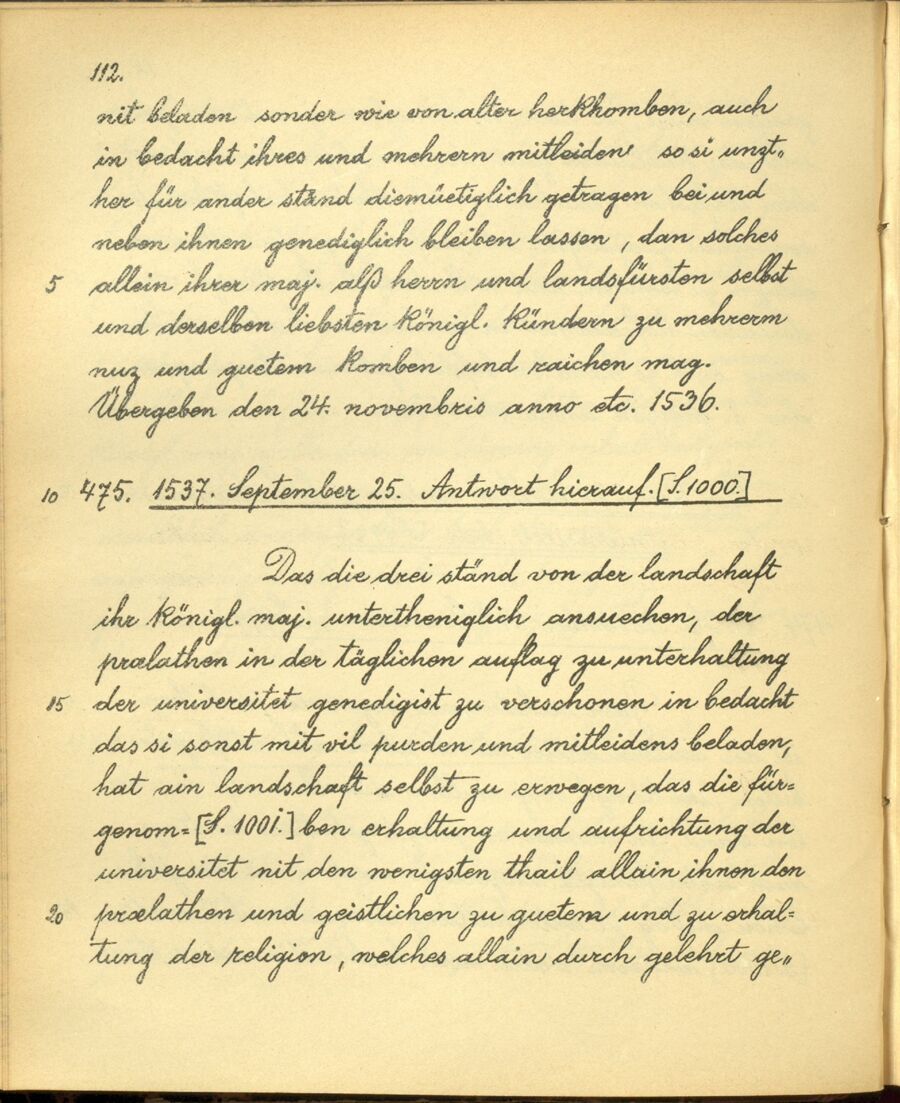 112.
nit beladen sonder wie von alter herkhomben, auch
in bedacht ihres und mehrern mitleiden so si unzt„
her für ander ständ diemüetiglich getragen bei und
neben ihnen genediglich bleiben lassen, dan solches
5 allein ihrer maj. alß herrn und landsfürsten selbst
und derselben liebsten königl. kündern zu mehrerm
nuz und guetem komben und raichen mag.
Übergeben den 24. novembris anno etc. 1536.
10 475. 1537. September 25. Antwort hierauf. [S. 1000.]
Das die drei ständ von der landschaft
ihr königl. maj. untertheniglich ansuechen, der
prælathen in der täglichen auflag zu unterhaltung
15 der universitet genedigist zu verschonen in bedacht
das si sonst mit vil purden und mitleidens beladen,
hat ain landschaft selbst zu erwegen, das die für=
genom=[S. 1001.] ben erhaltung und aufrichtung der
universitet nit den wenigsten thail allain ihnen den
20 prælathen und geistlichen zu guetem und zu erhal=
tung der religion, welches allain durch gelehrt ge„